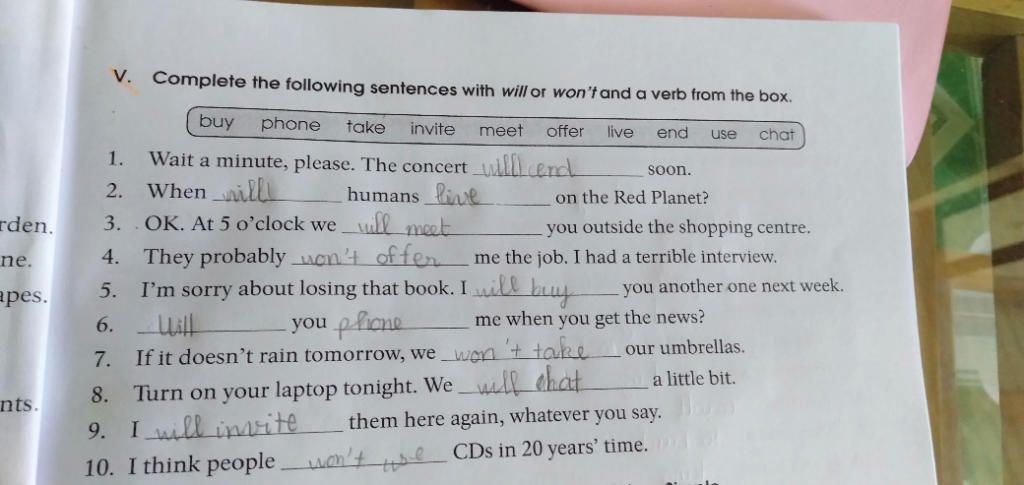 V. Complete the following sentences with will or won't and a verb from the box.
buy phone take invite meet offer live end use chat
1. Wait a minute, please. The concert will end soon.
2. When will humans live on the Red Planet?
rden.
3. OK. At 5 o'clock we will meet you outside the shopping centre.
ne.
4. They probably won't offer me the job. I had a terrible interview.
apes.
5. I'm sorry about losing that book. I will buy you another one next week.
6. Will you phone me when you get the news?
7. If it doesn't rain tomorrow, we won't take our umbrellas.
nts.
8. Turn on your laptop tonight. We will chat a little bit.
9. I will invite them here again, whatever you say.
10. I think people won't use CDs in 20 years' time.